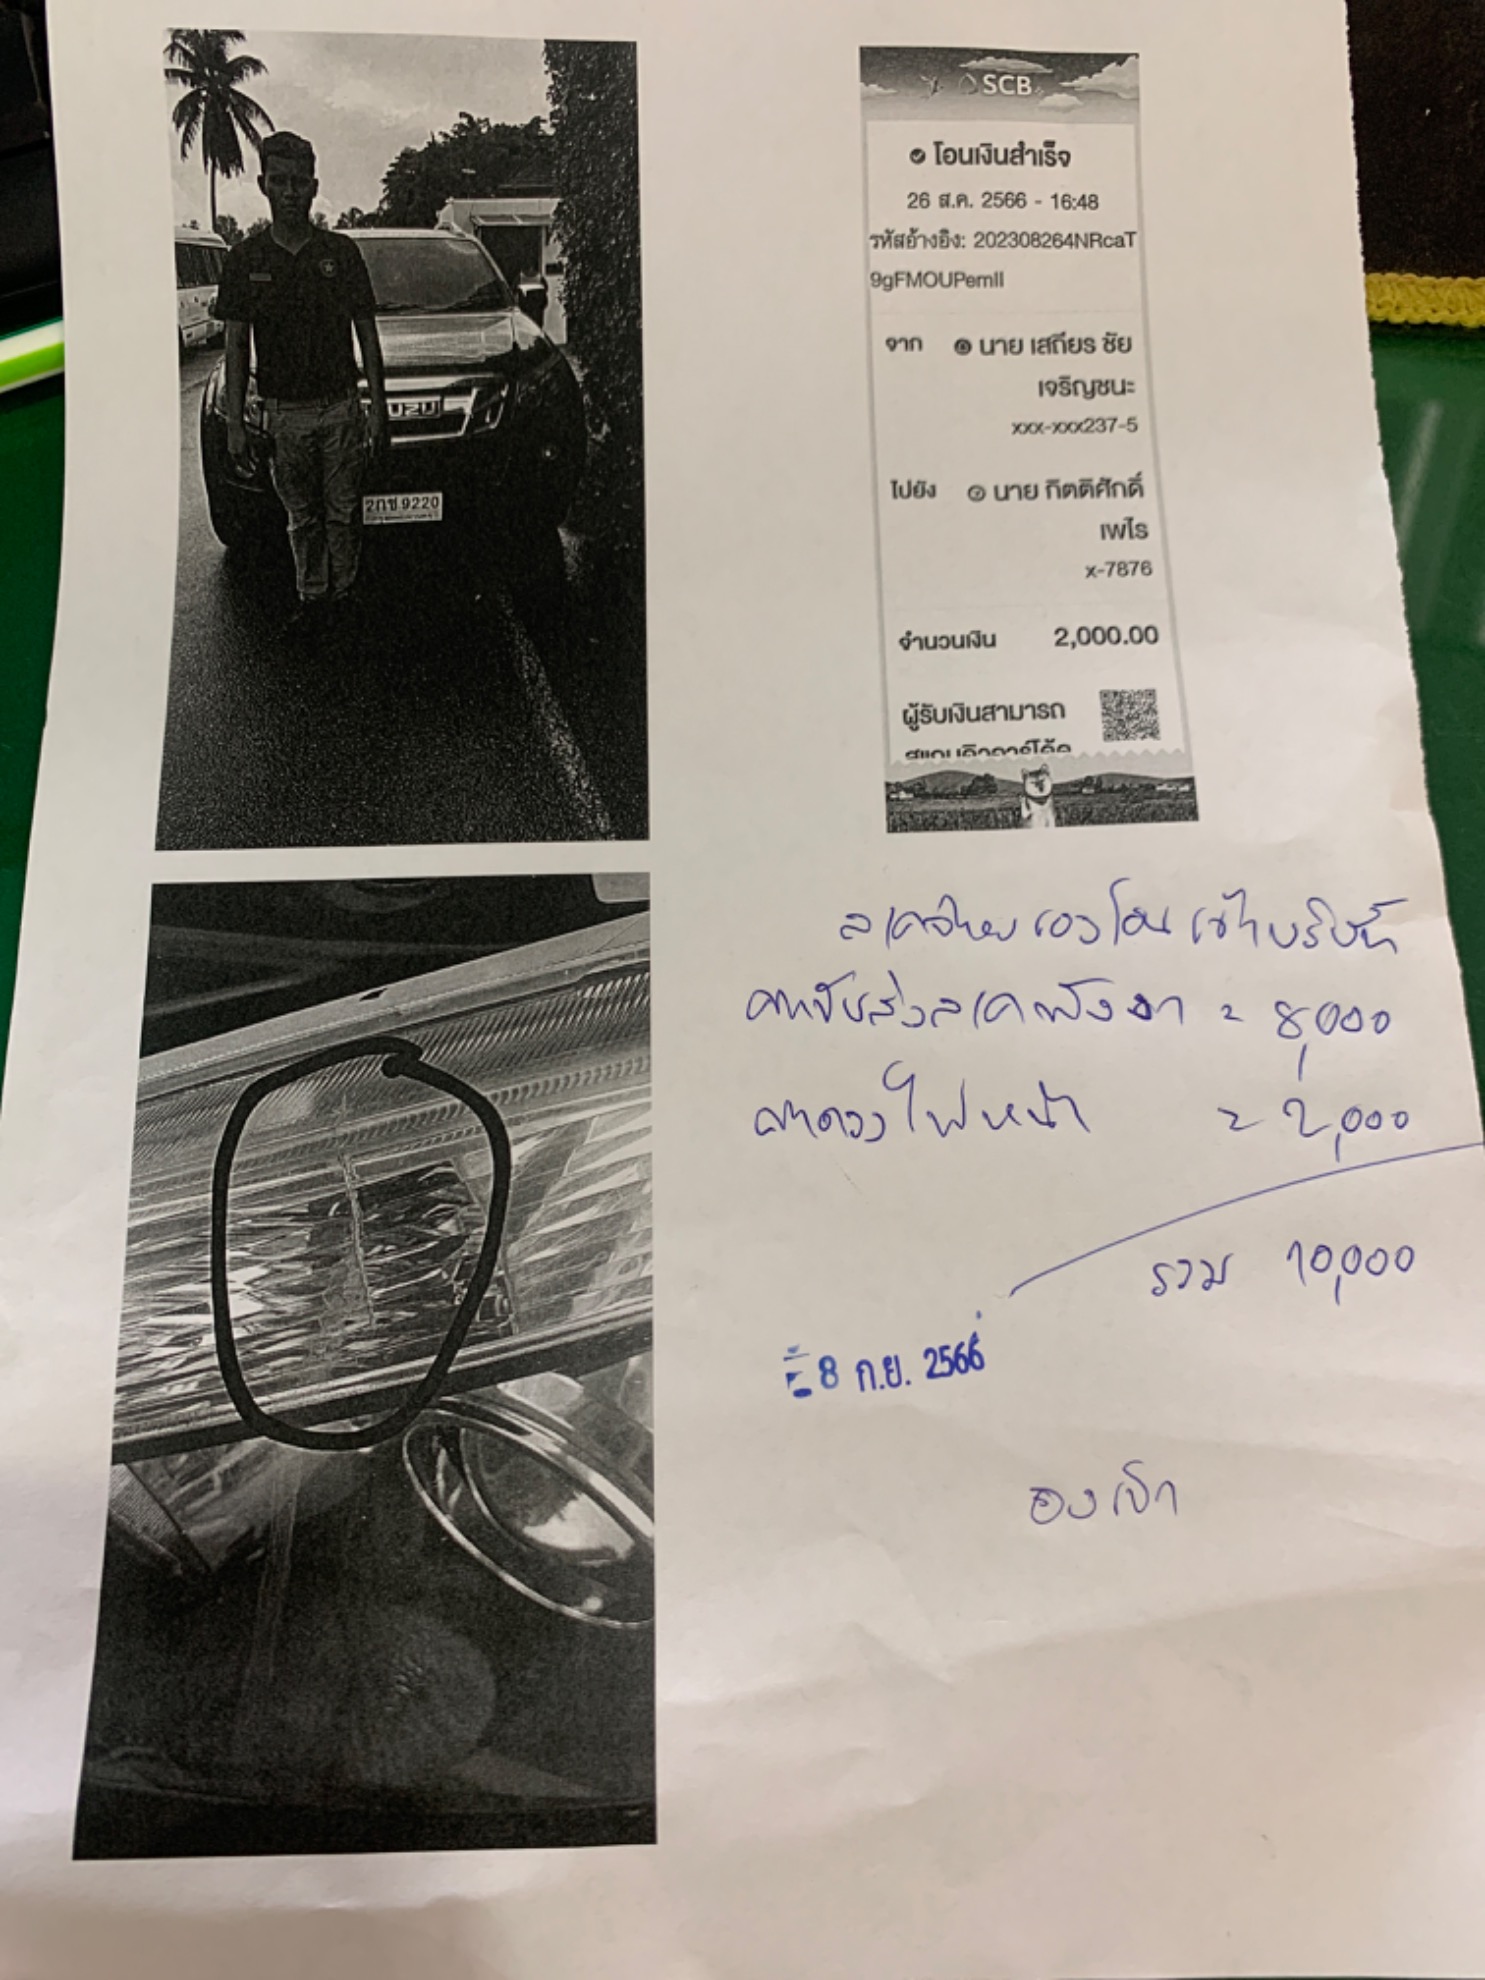 UZU
2กช 9220
SCB
โอนเงินสำเร็จ
26 ส.ค. 2566 - 16:48
รหัสอ้างอิง: 202308264NRcaT
9gFMOUPemII
จาก นาย เสถียร ชัย
เจริญชนะ
xxx-xxx237-5
ไปยัง นาย กิตติศักดิ์
เพไร
x-7876
จำนวนเงิน 2,000.00
ผู้รับเงินสามารถ
สแกนคิวอาร์โค้ด
โอนเข้าบริษัท
= 8,000
ไฟหน้า = 2,000
รวม 10,000
8 ก.ย. 2566